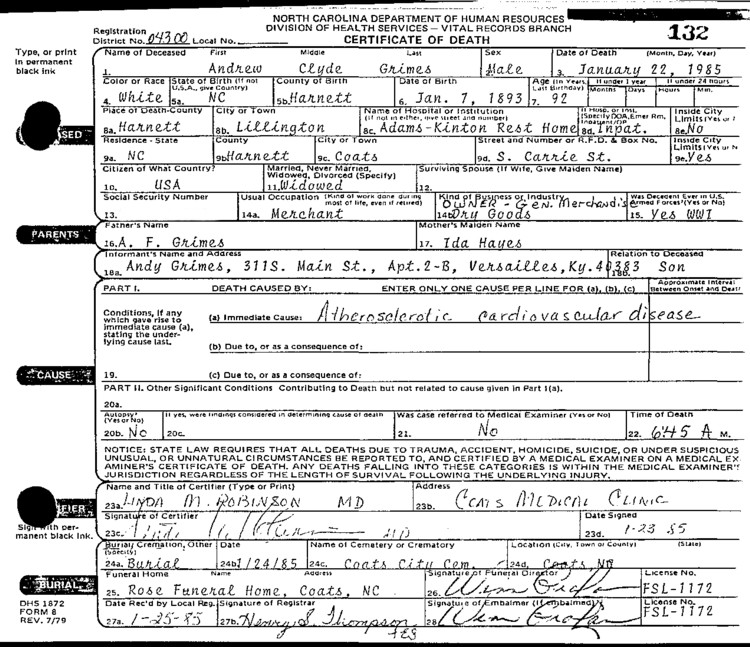 NORTH CAROLINA DEPARTMENT OF HUMAN RESOURCES
DIVISION OF HEALTH SERVICES — VITAL RECORDS BRANCH
CERTIFICATE OF DEATH
132
Registration
District No. 04300 Local No.
Type, or print
in permanent
black ink
Name of Deceased First Middle Last Sex Date of Death (Month, Day, Year)
1. Andrew Clyde Grimes Male 3. January 22, 1985
Color or Race State of Birth (If not U.S.A., give Country) County of Birth Date of Birth Age (in Years Last Birthday) If under 1 year Months Days If under 24 hours Hours Min.
4. White 5a. NC 5b. Harnett 6. Jan. 7, 1893 7. 92
Place of Death-County City or Town Name of Hospital or Institution (If not in either, give street and number) If Hosp. or Inst. (Specify DOA, Emer Rm, Inpatient/OP Inside City Limits (Yes or
8a. Harnett 8b. Lillington 8c. Adams-Kinton Rest Home 8d. Inpat. 8e. No
SED
Residence - State County City or Town Street and Number or R.F.D. & Box No. Inside City Limits (Yes or N
9a. NC 9b. Harnett 9c. Coats 9d. S. Carrie St. 9e. Yes
Citizen of What Country? Married, Never Married, Widowed, Divorced (Specify) Surviving Spouse (If Wife, Give Maiden Name)
10. USA 11. Widowed 12.
Social Security Number Usual Occupation (Kind of work done during most of life, even if retired) Kind of Business or Industry Was Decedent Ever in U.S. Armed Forces? (Yes or No)
OWNER - Gen. Merchand's
13. 14a. Merchant 14b. Dry Goods 15. Yes WWI
Father's Name Mother's Maiden Name
PARENTS
16. A. F. Grimes 17. Ida Hayes
Informant's Name and Address Relation to Deceased
18a. Andy Grimes, 311S. Main St., Apt.2-B, Versailles, Ky. 40383 18b. Son
PART I. DEATH CAUSED BY: ENTER ONLY ONE CAUSE PER LINE FOR (a), (b), (c) Approximate Interval Between Onset and Death
Conditions, if any
which gave rise to
immediate cause (a),
stating the under-
lying cause last.
(a) Immediate Cause: Atherosclerotic cardiovascular disease
(b) Due to, or as a consequence of:
CAUSE
19. (c) Due to, or as a consequence of:
PART II. Other Significant Conditions Contributing to Death but not related to cause given in Part I(a).
20a.
Autopsy? (Yes or No) If yes, were findings considered in determining cause of death Was case referred to Medical Examiner (Yes or No) Time of Death
20b. No 20c. 21. No 22. 6:45 A M.
NOTICE: STATE LAW REQUIRES THAT ALL DEATHS DUE TO TRAUMA, ACCIDENT, HOMICIDE, SUICIDE, OR UNDER SUSPICIOUS
UNUSUAL, OR UNNATURAL CIRCUMSTANCES BE REPORTED TO, AND CERTIFIED BY A MEDICAL EXAMINER ON A MEDICAL EX-
AMINER'S CERTIFICATE OF DEATH. ANY DEATHS FALLING INTO THESE CATEGORIES IS WITHIN THE MEDICAL EXAMINER'S
JURISDICTION REGARDLESS OF THE LENGTH OF SURVIVAL FOLLOWING THE UNDERLYING INJURY.
Name and Title of Certifier (Type or Print) Address
23a. LINDA M. ROBINSON MD 23b. COATS MEDICAL CLINIC
IFIER
Signature of Certifier Date Signed
Sign with per-
manent black ink.
23c. MD 23d. 1-23 85
Burial, Cremation, Other (Specify) Date Name of Cemetery or Crematory Location (City, Town or County) (State)
24a. Burial 24b. 1/24/85 24c. Coats City Cem. 24d. Coats, NC
BURIAL
Funeral Home Name Address Signature of Funeral Director License No.
25. Rose Funeral Home, Coats, NC 26. FSL-1172
DHS 1872
FORM 8
REV. 7/79
Date Rec'd by Local Reg. Signature of Registrar Signature of Embalmer (If embalmed) License No.
27a. 1-25-85 27b. Henry S. Thompson 28. FSL-1172